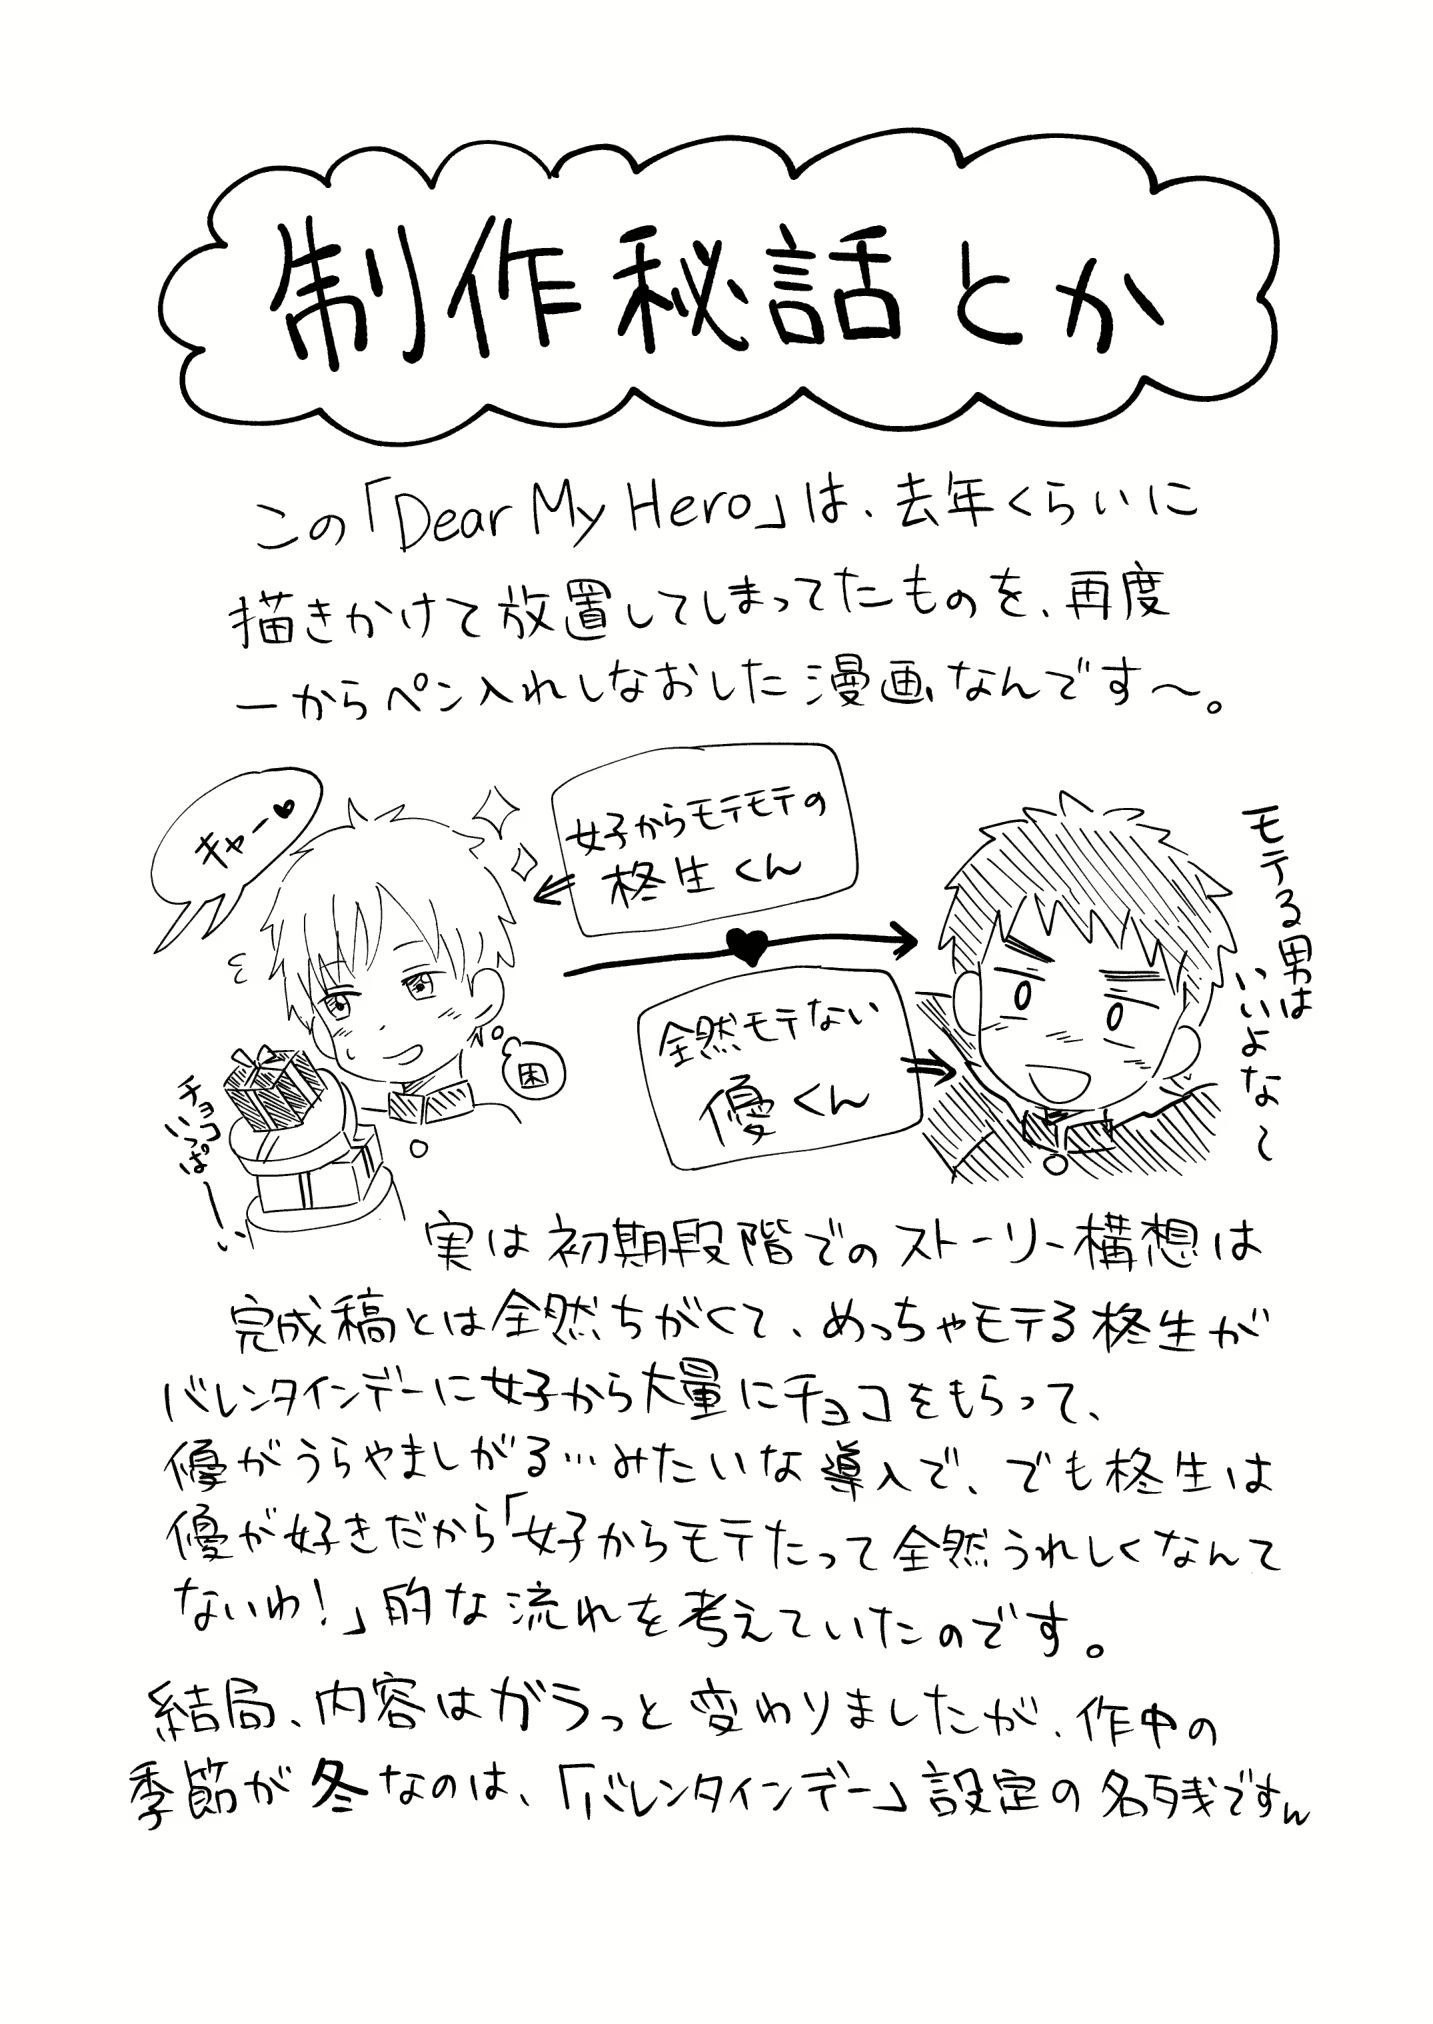 制作秘話とか
この「Dear My Hero」は、去年くらいに
描きかけて放置してしまってたものを、再度
一からペン入れしなおした漫画なんです〜。
キャー♥
女子からモテモテの
柊生くん
モテる男は
いいよな〜
全然モテない
優くん
困
チョコ
いっぱーい
実は初期段階でのストーリー構想は
完成稿とは全然ちがくて、めっちゃモテる柊生が
バレンタインデーに女子から大量にチョコをもらって、
優がうらやましがる…みたいな導入で、でも柊生は
優が好きだから「女子からモテたって全然うれしくなんて
ないわ!」的な流れを考えていたのです。
結局、内容はガラっと変わりましたが、作中の
季節が冬なのは、「バレンタインデー」設定の名残ですw